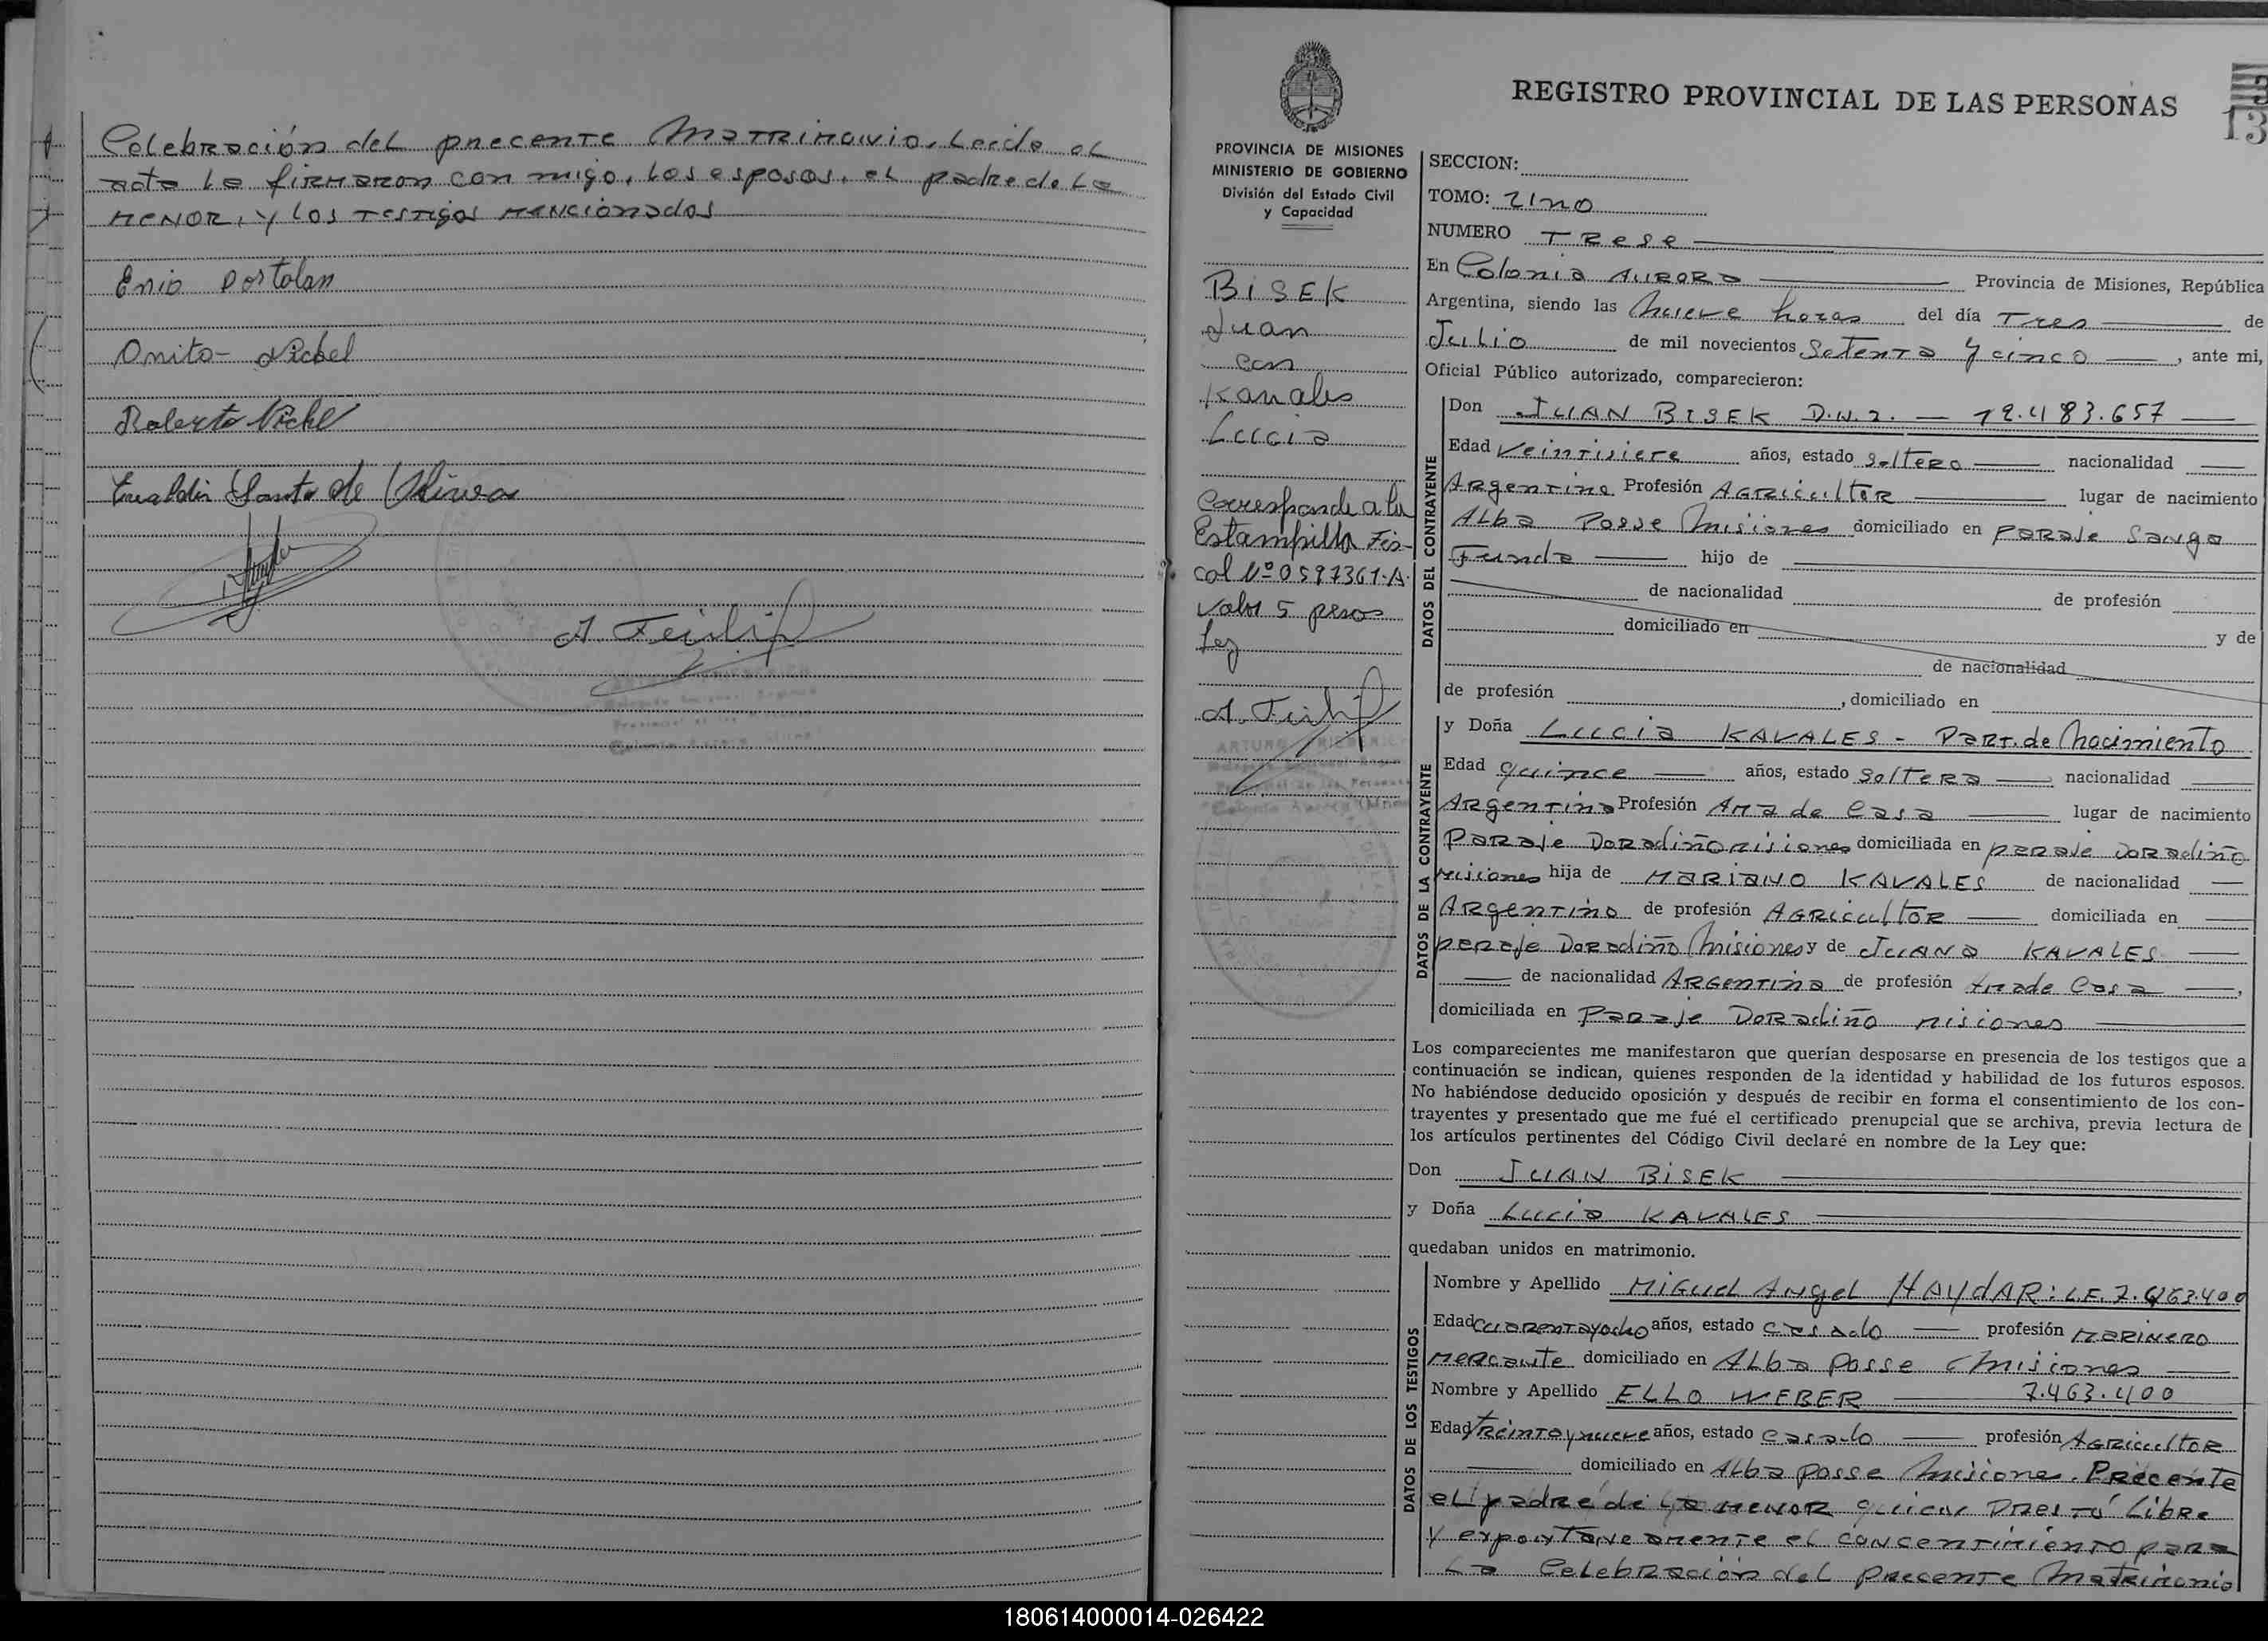 Celebración del precente Matrimonio. Leida el
acta la firmaron con migo, los esposos, el padre de la
menor, y los testigos mencionados
Enio Portolan
Onito Nichel
Roberto Nichel
de Oliveira
A.
REGISTRO PROVINCIAL DE LAS PERSONAS
13
PROVINCIA DE MISIONES
MINISTERIO DE GOBIERNO
División del Estado Civil
y Capacidad
BISEK
Juan
con
Kavales
Lucia
Corresponde a la
Estampilla Fis-
cal Nº 0597361-A.
Valor 5 pesos
Ley
A.
ARTURO
SECCION:
TOMO: Uno
NUMERO Trese
En Colonia Aurora Provincia de Misiones, República
Argentina, siendo las Nueve horas del día Tres de
Julio de mil novecientos Setenta y cinco, ante mi,
Oficial Público autorizado, comparecieron:
DATOS DEL CONTRAYENTE
Don JUAN BISEK D.N.I. — 12.483.657
Edad Veintisiete años, estado Soltero nacionalidad
Argentino Profesión Agricultor lugar de nacimiento
Alba Posse Misiones domiciliado en Paraje Sanga
Funda hijo de
de nacionalidad de profesión
domiciliado en y de
de nacionalidad
de profesión , domiciliado en
DATOS DE LA CONTRAYENTE
y Doña Lucia KAVALES - Part. de Nacimiento
Edad quince años, estado Soltera nacionalidad
Argentina Profesión Ama de Casa lugar de nacimiento
Paraje Doradiño Misiones domiciliada en paraje Doradiño
Misiones hija de MARIANO KAVALES de nacionalidad
Argentino de profesión Agricultor domiciliada en
paraje Doradiño Misiones y de JUANA KAVALES
de nacionalidad Argentina de profesión Ama de Casa,
domiciliada en Paraje Doradiño Misiones
Los comparecientes me manifestaron que querían desposarse en presencia de los testigos que a
continuación se indican, quienes responden de la identidad y habilidad de los futuros esposos.
No habiéndose deducido oposición y después de recibir en forma el consentimiento de los con-
trayentes y presentado que me fué el certificado prenupcial que se archiva, previa lectura de
los artículos pertinentes del Código Civil declaré en nombre de la Ley que:
Don JUAN BISEK
y Doña Lucia KAVALES
quedaban unidos en matrimonio.
DATOS DE LOS TESTIGOS
Nombre y Apellido Miguel Angel HAYDAR: L.E. 7.463.400
Edad cuarenta y ocho años, estado casado profesión marinero
mercante domiciliado en Alba Posse Misiones
Nombre y Apellido ELLO WEBER 7.463.400
Edad treinta y nueve años, estado casado profesión Agricultor
domiciliado en Alba posse Misiones. Precente
el padre de la menor quien prestó libre
y expontaneamente el concentimiento para
la Celebración del precente Matrimonio
180614000014-026422